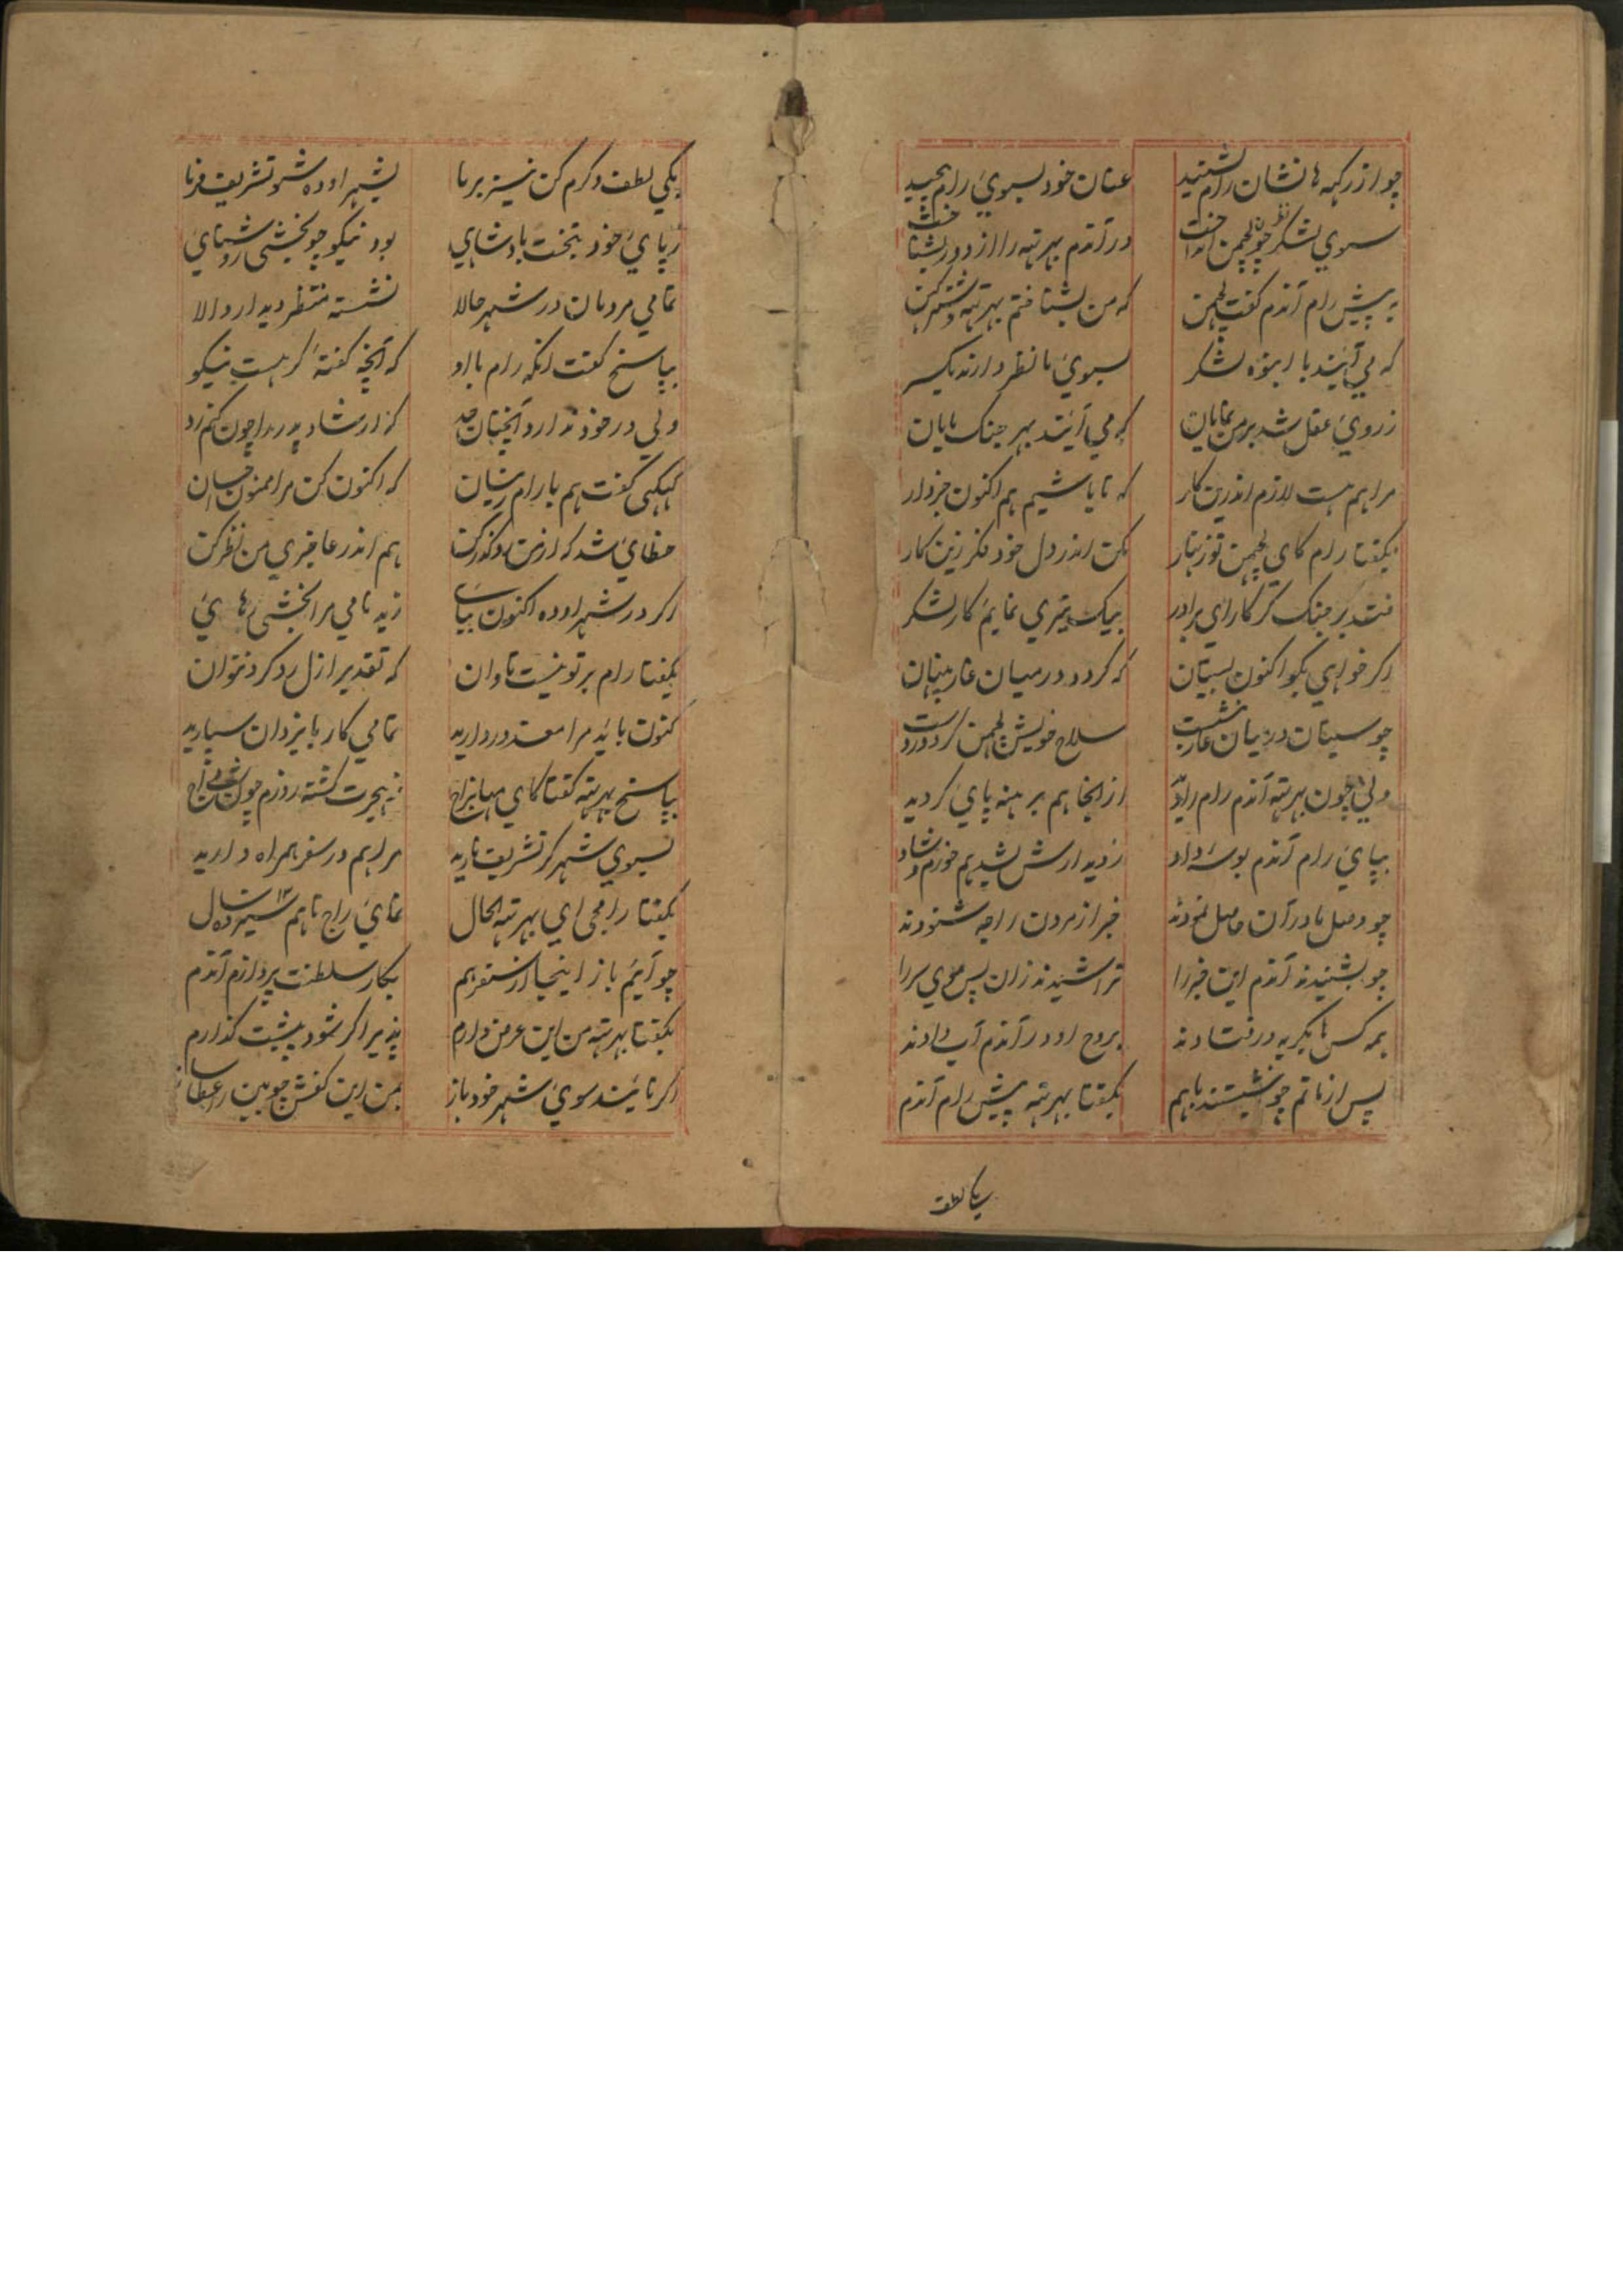 چو از رکهه ها نشان رام شنید عنان خود بسوی رام پیچید
سوی لشکر نظر چون لچمن انداخت در آندم بهرته را از دور بشناخت
به پیش رام آندم گفت لچمن که من بشناختم بهرته و شترکن
که می آیند با انبوه لشکر بسوی ما نظر دارند یکسر
ز روی عقل شد بر من نمایان که می آیند بهر جنک مایان
مرا هم هست لازم اندرین کار که تا باشیم هم اکنون خبردار
بگفتا رام کای لچمن تو زنهار مکن اندر دل خود فکر زین کار
فتد بر جنک گر کار ای برادر بیک تیری نمایم کار لشکر
اگر خواهی بگو اکنون بسیتان که گردد در میان غار پنهان
چو سیتان در میان غار بنشست سلاح خویش لچمن کرد درست
ولی چون بهرته آندم رام را دید از آنجا هم برهنه پای گردید
بپای رام آندم بوسه داد ز دیدارش شدیم خورم و شاد
چو وصل مادران حاصل نمودند خبر از مردن راجه شنودند
چو بشنیدند آندم این خبر را تراشیدند زان پس موی سر را
همه کس ها بگریه در فتادند بروح او در آندم آب دادند
پس از ماتم چو بنشستند باهم بگفتا بهرته پیش رام آندم
یکی لطف
یکی لطف و کرم کن نیز بر ما بشهر اوده شو تشریف فرما
ز پای خود بتخت بادشاهی بود نیکو چو بخشی روشنای
تمامی مردمان در شهر حالا نشسته منتظر دیدار والا
بپاسخ گفت انکه رام با او که آنچه گفتهٔ گر هست نیکو
ولی در خود ندارد آنچنان حد که ارشاد پدر را چون کنم رد
کیکی گفت هم با رام زینسان که اکنون کن مرا ممنون احسان
خطای شد که از من در گذر کن هم اندر عاجزی من نظر کن
اگر در شهر اوده اکنون بیای ز بدنامی مرا بخشی رهای
بگفتا رام بر تو نیست تاوان که تقدیر ازل رد کرد نتوان
کنون باید مرا معذور دارید تمامی کار با یزدان سپارید
بپاسخ بهرته گفتا کای مهاراج ز هجرت گشته روزم چون شب داج
بسوی شهر گر تشریف نارید مرا هم در سفر همراه دارید
بگفتا رامجی ای بهرته الحال نمای راج تا هم سیزده سال ۱۳
چو آیم باز اینجا از سفر هم بکار سلطنت پردازم آندم
بگفتا بهرته من این عرض دارم پذیرا گر شود پیشت گذارم
اگر نایند سوی شهر خود باز بمن این کفش چوبین را عطا ساز